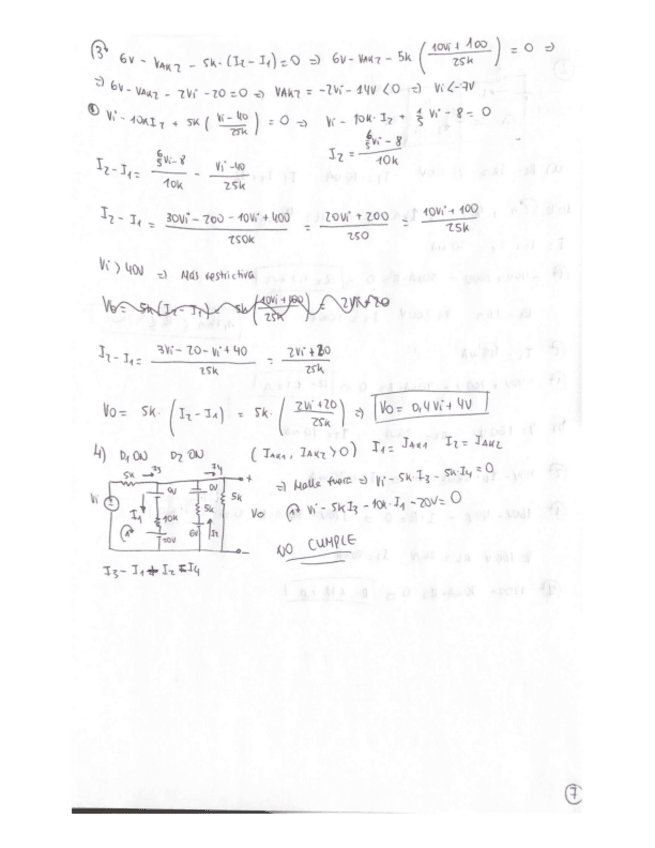 ③ 6V - VAK2 - 5k·(I2 - I1) = 0 ⇒ 6V - VAK2 - 5k (10Vi + 100 / 25k) = 0 ⇒
⇒ 6V - VAK2 - 2Vi - 20 = 0 ⇒ VAK2 = -2Vi - 14V < 0 ⇒ Vi < -7V
Vi - 10kI2 + 5k (Vi - 40 / 25k) = 0 ⇒ Vi - 10k·I2 + 1/5 Vi - 8 = 0
I2 = 6/5Vi - 8 / 10k
I2 - I1 = 6/5Vi - 8 / 10k - Vi - 40 / 25k
I2 - I1 = 30Vi - 200 - 10Vi + 400 / 250k = 20Vi + 200 / 250 = 10Vi + 100 / 25k
Vi > 40V ⇒ Más restrictiva
Vo = 5k (I2 - I1) = 5k (10Vi + 100 / 25k) = 2Vi + 20
I2 - I1 = 3Vi - 20 - Vi + 40 / 25k = 2Vi + 20 / 25k
Vo = 5k · (I2 - I1) = 5k · (2Vi + 20 / 25k) ⇒ Vo = 0,4Vi + 4V
4) D1 ON D2 ON (IAK1, IAK2 > 0) I1 = IAK1 I2 = IAK2
5k I3 I4 +
0V 0V
Vi I1 5k 5k Vo
10k 6V I2
20V -
⇒ Malla fuera ⇒ Vi - 5k I3 - 5k·I4 = 0
Vi - 5k I3 - 10k·I1 - 20V = 0
NO CUMPLE
I3 - I1 + I2 = I4
7